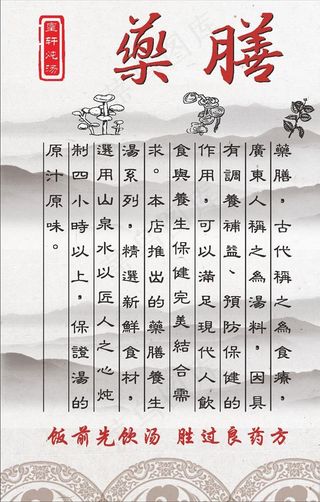 壹轩炖汤
藥膳
藥膳，古代稱之為食療，
廣東人稱之為湯料，因具
有調養補益、預防保健的
作用，可以滿足現代人飲
食與養生保健完美結合需
求。本店推出的藥膳養生
湯系列，精選新鮮食材，
選用山泉水以匠人之心炖
制四小時以上，保證湯的
原汁原味。
饭前先饮汤 胜过良药方